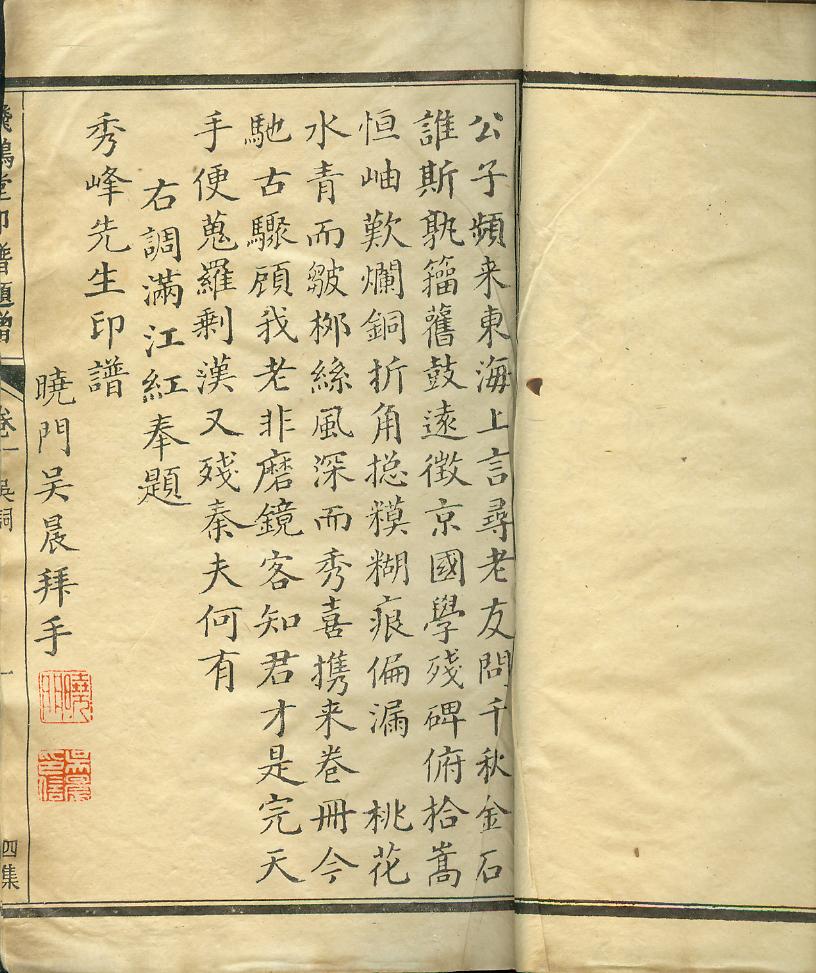 公子頻来東海上言尋老友問千秋金石
誰斯孰籕舊鼓遠徴京國學殘碑俯拾嵩
恒岫歎爛銅折角揔糢糊痕偏漏　桃花
水青而皺栁絲風深而秀喜携来卷冊今
馳古驟顧我老非磨鏡客知君才是完天
手便蒐羅剩漢又殘秦夫何有
右調滿江紅奉題
秀峰先生印譜
曉門吴晨拜手
曉門
吴晨印信
飛鴻堂印譜題增
卷一
吴詞
一
四集